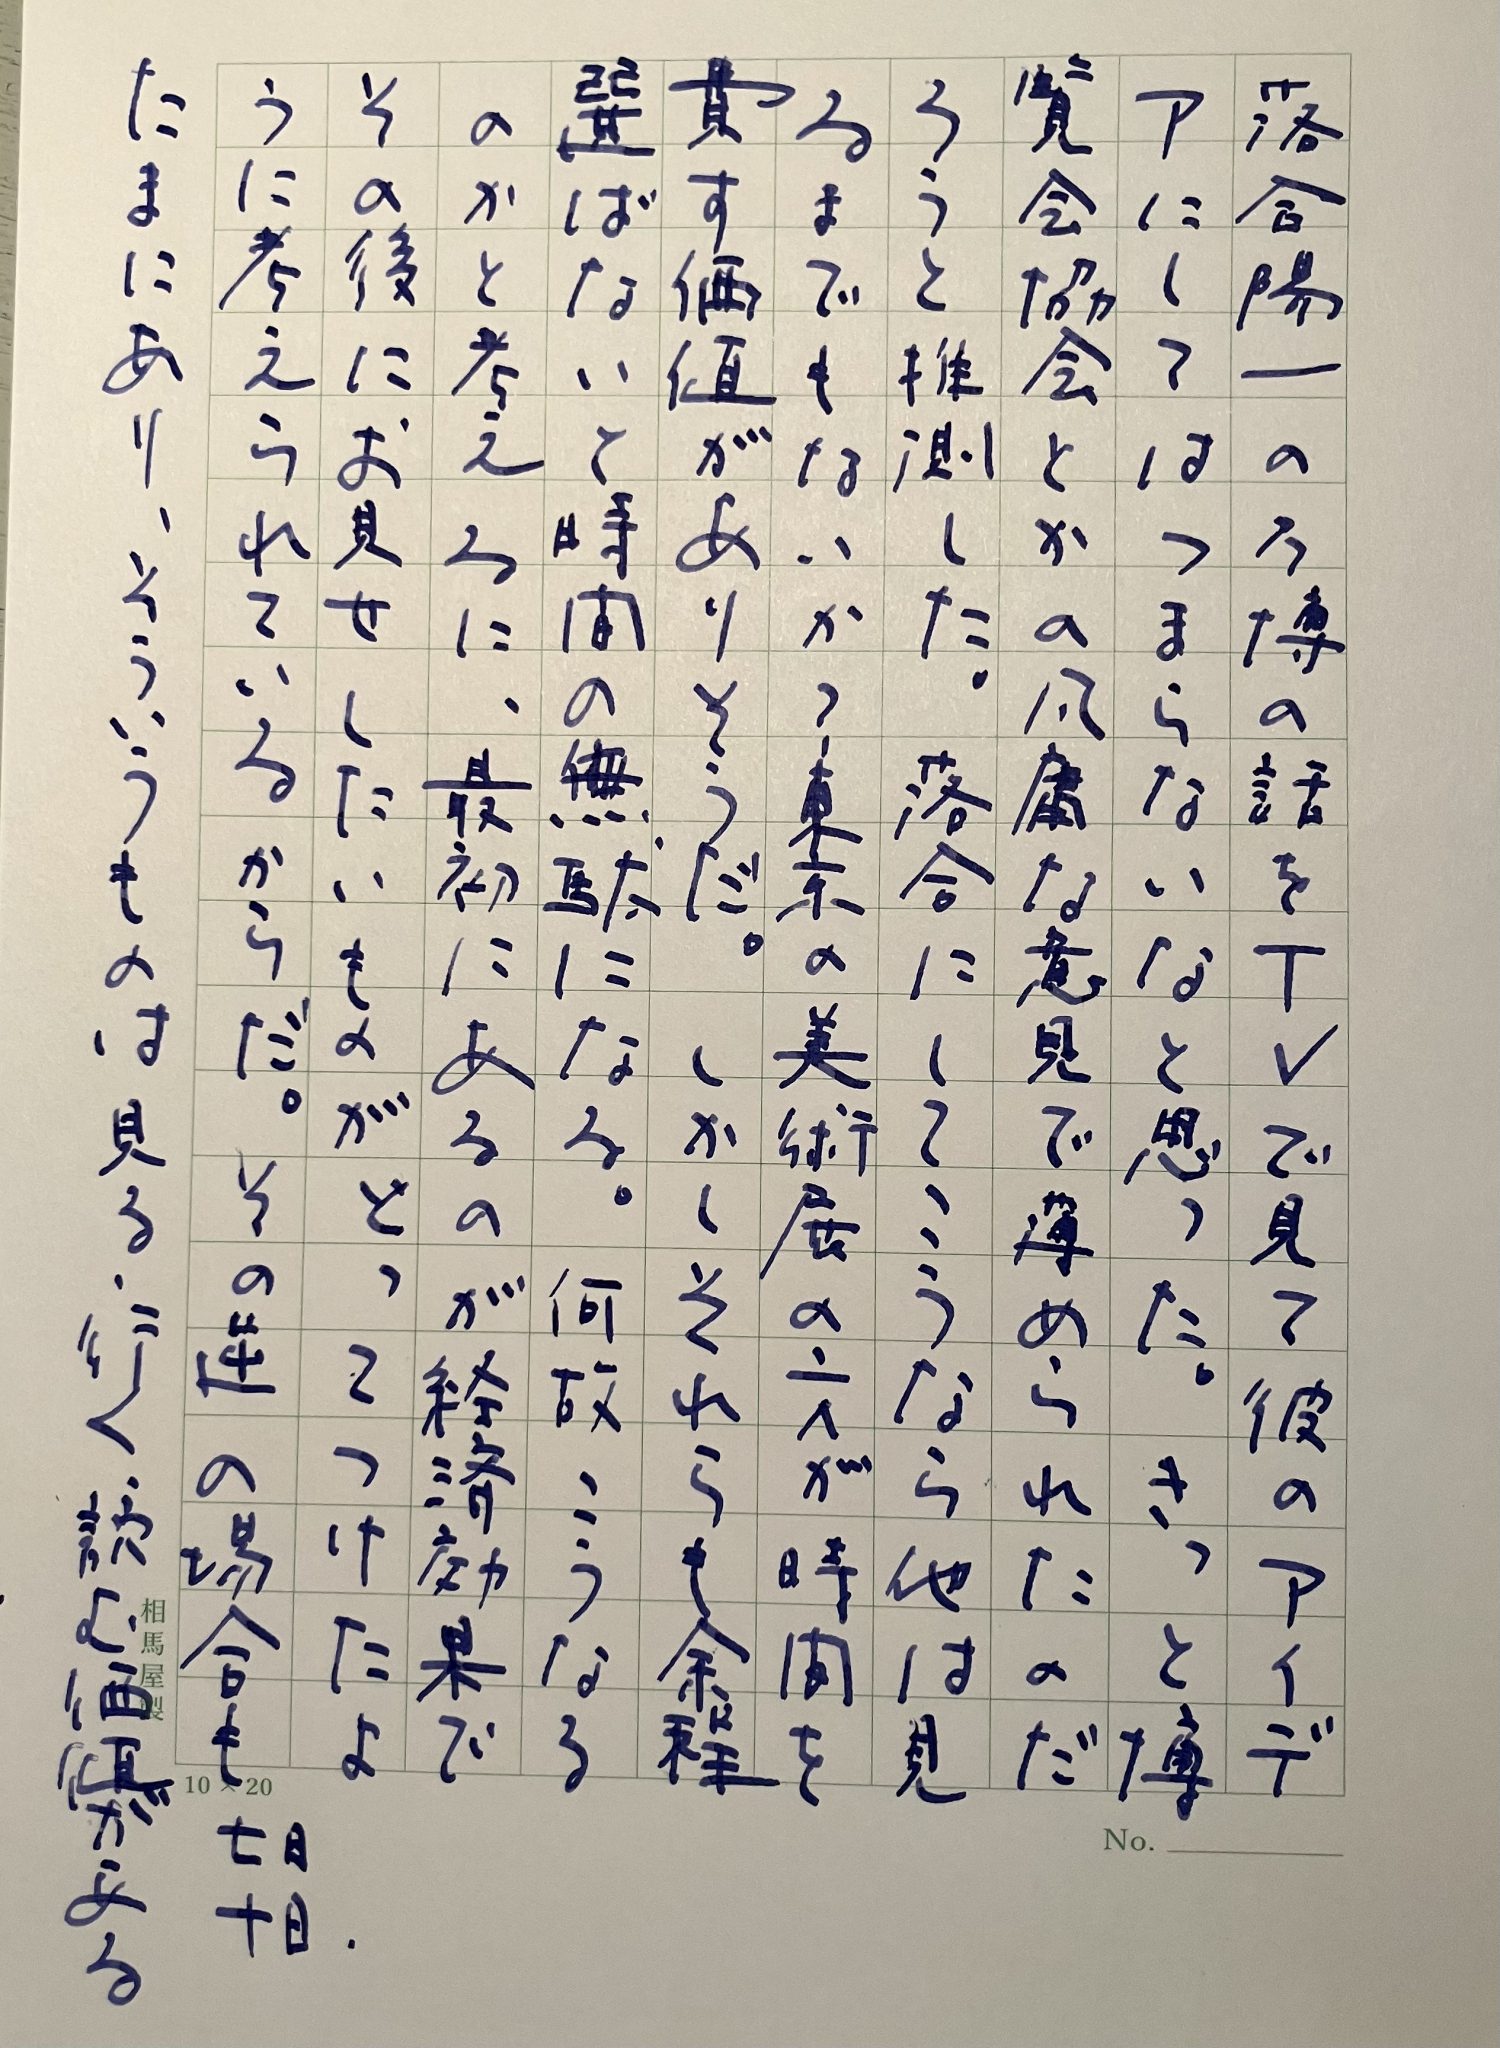 落合陽一の万博の話をTVで見て彼のアイデ
アにしてはつまらないなと思った。きっと博
覧会協会とかの凡庸な意見で薄められたのだ
ろうと推測した。落合にしてこうなら他は見
るまでもないかな？東京の美術展の六が時間を
費す価値がありそうだ。しかしそれらも余程
選ばないと時間の無駄になる。何故こうなる
のかと考えるに、最初にあるのが経済効果で
その後にお見せしたいものがとってつけたよ
うに考えられているからだ。その逆の場合も
たまにあり、そういうものは見る・行く・読む価値がある
七月
十日.
相馬屋製
10×20
No.